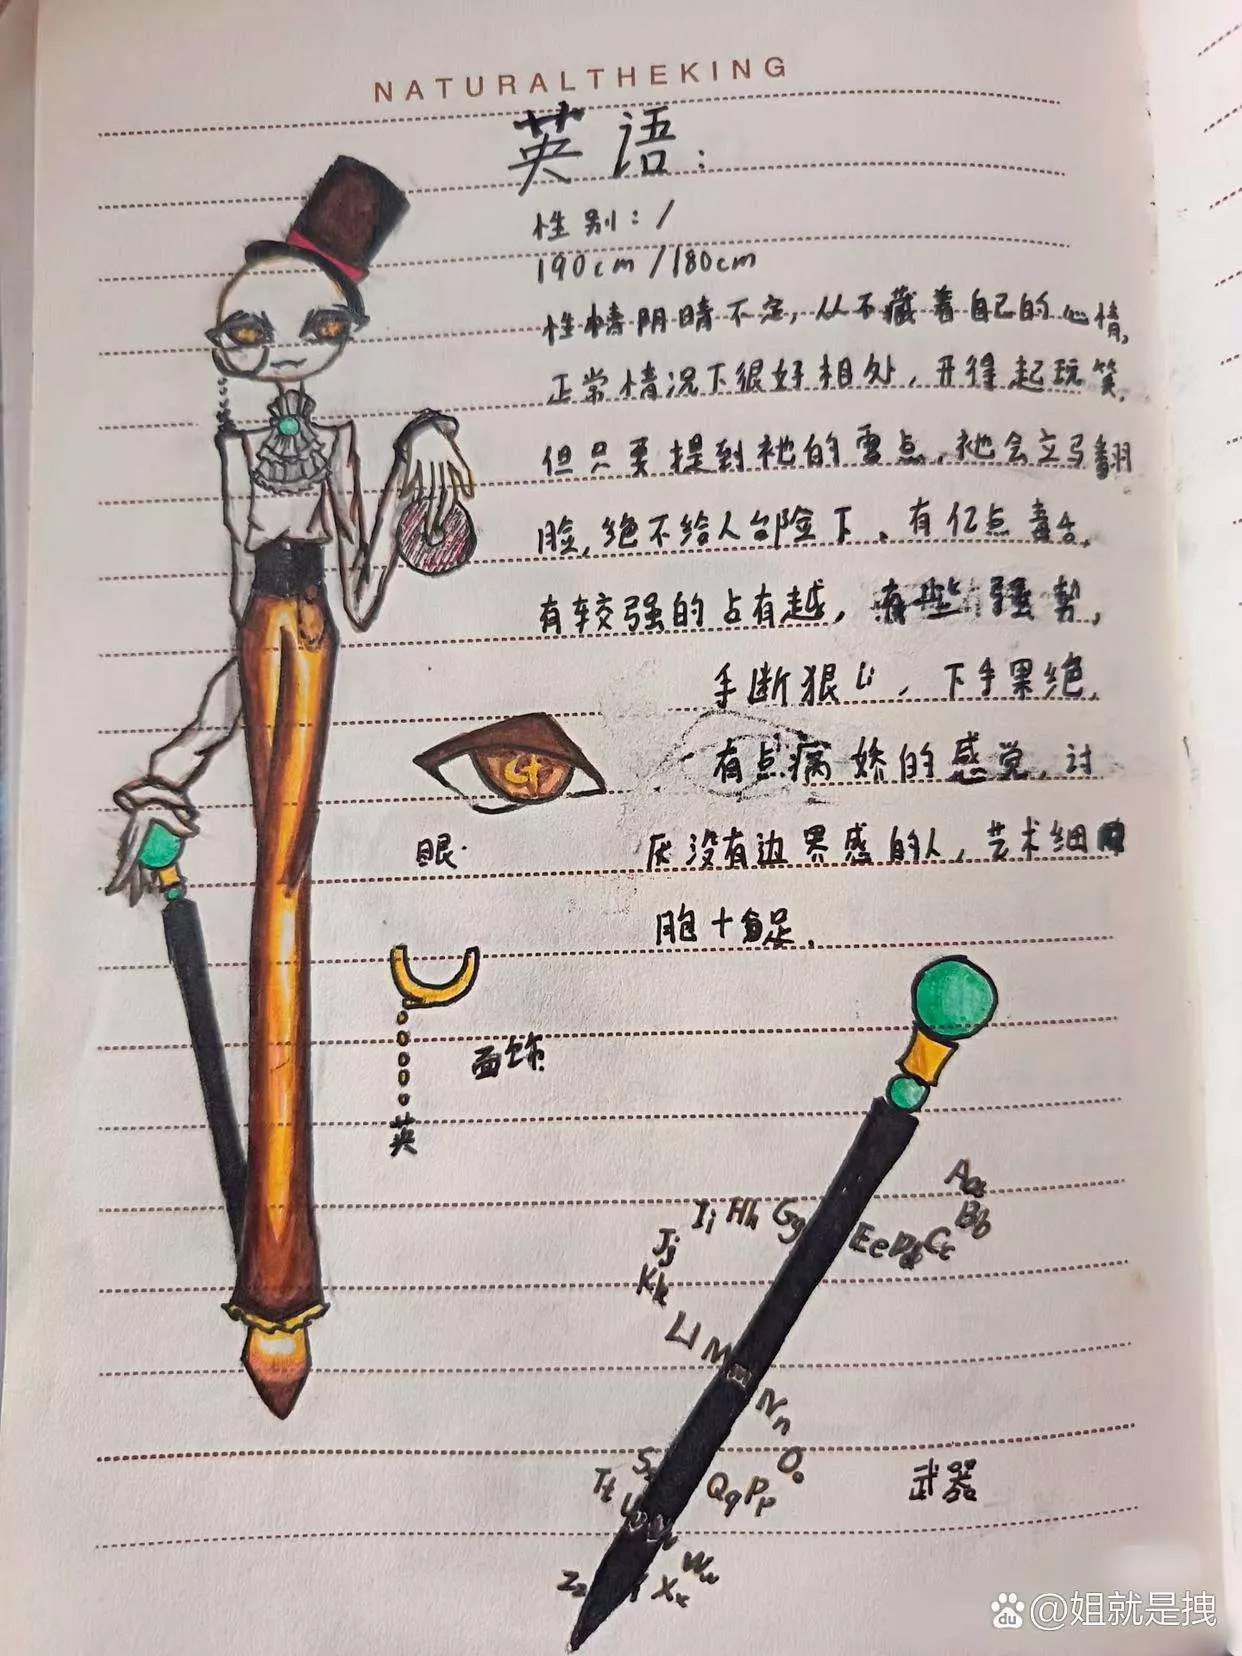 NATURALTHEKING
英语:
性别: /
190cm/180cm
性情阴晴不定,从不藏着自己的心情,
正常情况下很好相处,开得起玩笑,
但只要提到祂的雷点,祂会立马翻
脸,绝不给人台阶下、有亿点毒舌,
有较强的占有越,有些强势,
手断狠心,下手果绝,
有点病娇的感觉,讨
厌没有边界感的人,艺术细
胞十足,
眼.
面饰.
英
Aa
Bb
Cc
Dd
Ee
Gg
Hh
Ii
Jj
Kk
Ll
M
Nn
Oo
Pp
Qq
S
Tt
Ww
Xx
Zz
武器
du @姐就是拽